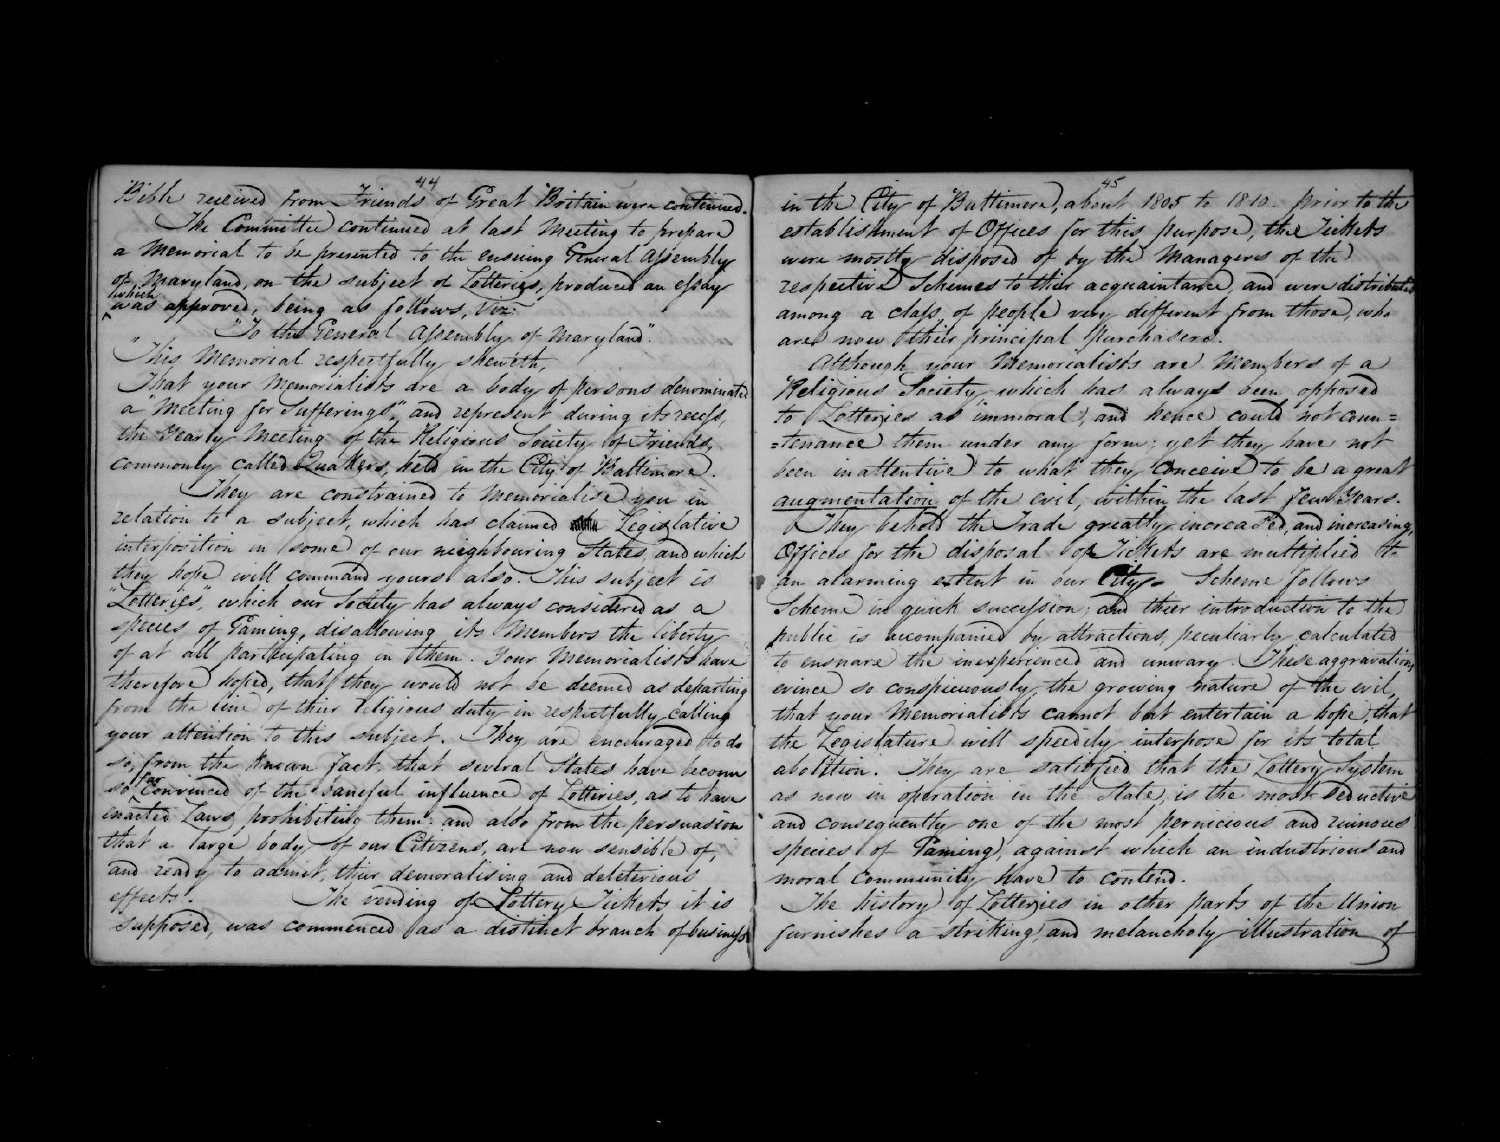 44
Bible received from Friends of Great Britain were continued.
The Committee continued at last Meeting to prepare
a Memorial to be presented to the ensuing General Assembly
of Maryland, on the subject of Lotteries, produced an essay
which
was approved, being as follows, Viz:
"To the General Assembly of Maryland".
"This Memorial respectfully sheweth,
That your Memorialists are a body of persons denominated
a "Meeting for Sufferings", and represent during its recess,
the Yearly Meeting of the Religious Society of Friends,
commonly called Quakers, held in the City of Baltimore.
They are constrained to Memorialise you in
relation to a subject, which has claimed Legislative
interposition in some of our neighbouring States, and which
they hope will command yours also. This subject is
"Lotteries", which our Society has always considered as a
species of Gaming, disallowing its Members the liberty
of at all participating in them. Your Memorialists have
therefore hoped, that they would not be deemed as departing
from the line of their religious duty in respectfully calling
your attention to this subject. They are encouraged to do
so, from the known fact, that several States have become
so far convinced of the baneful influence of Lotteries, as to have
enacted Laws prohibiting them: and also from the persuasion
that a large body of our Citizens, are now sensible of,
and ready to admit, their demoralising and deleterious
effects. The vending of Lottery Tickets it is
supposed, was commenced as a distinct branch of business
45
in the City of Baltimore, about 1805 to 1810. prior to the
establishment of Offices for this purpose, the Tickets
were mostly disposed of by the Managers of the
respective Schemes to their acquaintance, and were distributed
among a class, of people very different from those, who
are now their principal Purchasers.
Although your Memorialists are Members of a
Religious Society which has always been opposed
to Lotteries as "immoral", and hence could not coun=
=tenance them under any form; yet they have not
been inattentive to what they Conceive to be a great
augmentation of the evil, within the last few Years.
They behold the Trade greatly increased, and increasing,
Offices for the disposal of Tickets are multiplied to
an alarming extent in our City. Scheme follows
Scheme in quick succession; and their introduction to the
public is accompanied by attractions, peculiarly calculated
to ensnare the inexperienced and unwary. These aggravations,
evince so conspicuously the growing nature of the evil,
that your Memorialists cannot but entertain a hope, that
the Legislature will speedily interpose for its total
abolition. They are satisfied that the Lottery System
as now in operation in the State, is the most seductive
and consequently one of the most pernicious and ruinous
species of Gaming, against which an industrious and
moral Community have to contend.
The history of Lotteries in other parts of the Union
furnishes a striking and melancholy illustration of